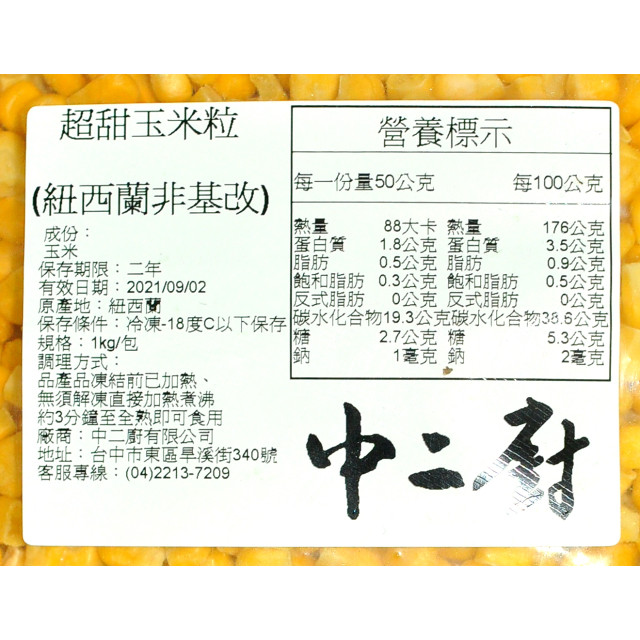 超甜玉米粒
(紐西蘭非基改)
成份：
玉米
保存期限：二年
有效日期：2021/09/02
原產地：紐西蘭
保存條件：冷凍-18度C以下保存
規格：1kg/包
調理方式：
品產品凍結前已加熱、
無須解凍直接加熱煮沸
約3分鐘至全熟即可食用
廠商：中二廚有限公司
地址：台中市東區旱溪街340號
客服專線：(04)2213-7209
營養標示
每一份量50公克 每100公克
熱量 88大卡 熱量 176公克
蛋白質 1.8公克 蛋白質 3.5公克
脂肪 0.5公克 脂肪 0.9公克
飽和脂肪 0.3公克 飽和脂肪 0.5公克
反式脂肪 0公克 反式脂肪 0公克
碳水化合物19.3公克碳水化合物38.6公克
糖 2.7公克 糖 5.3公克
鈉 1毫克 鈉 2毫克
中二廚